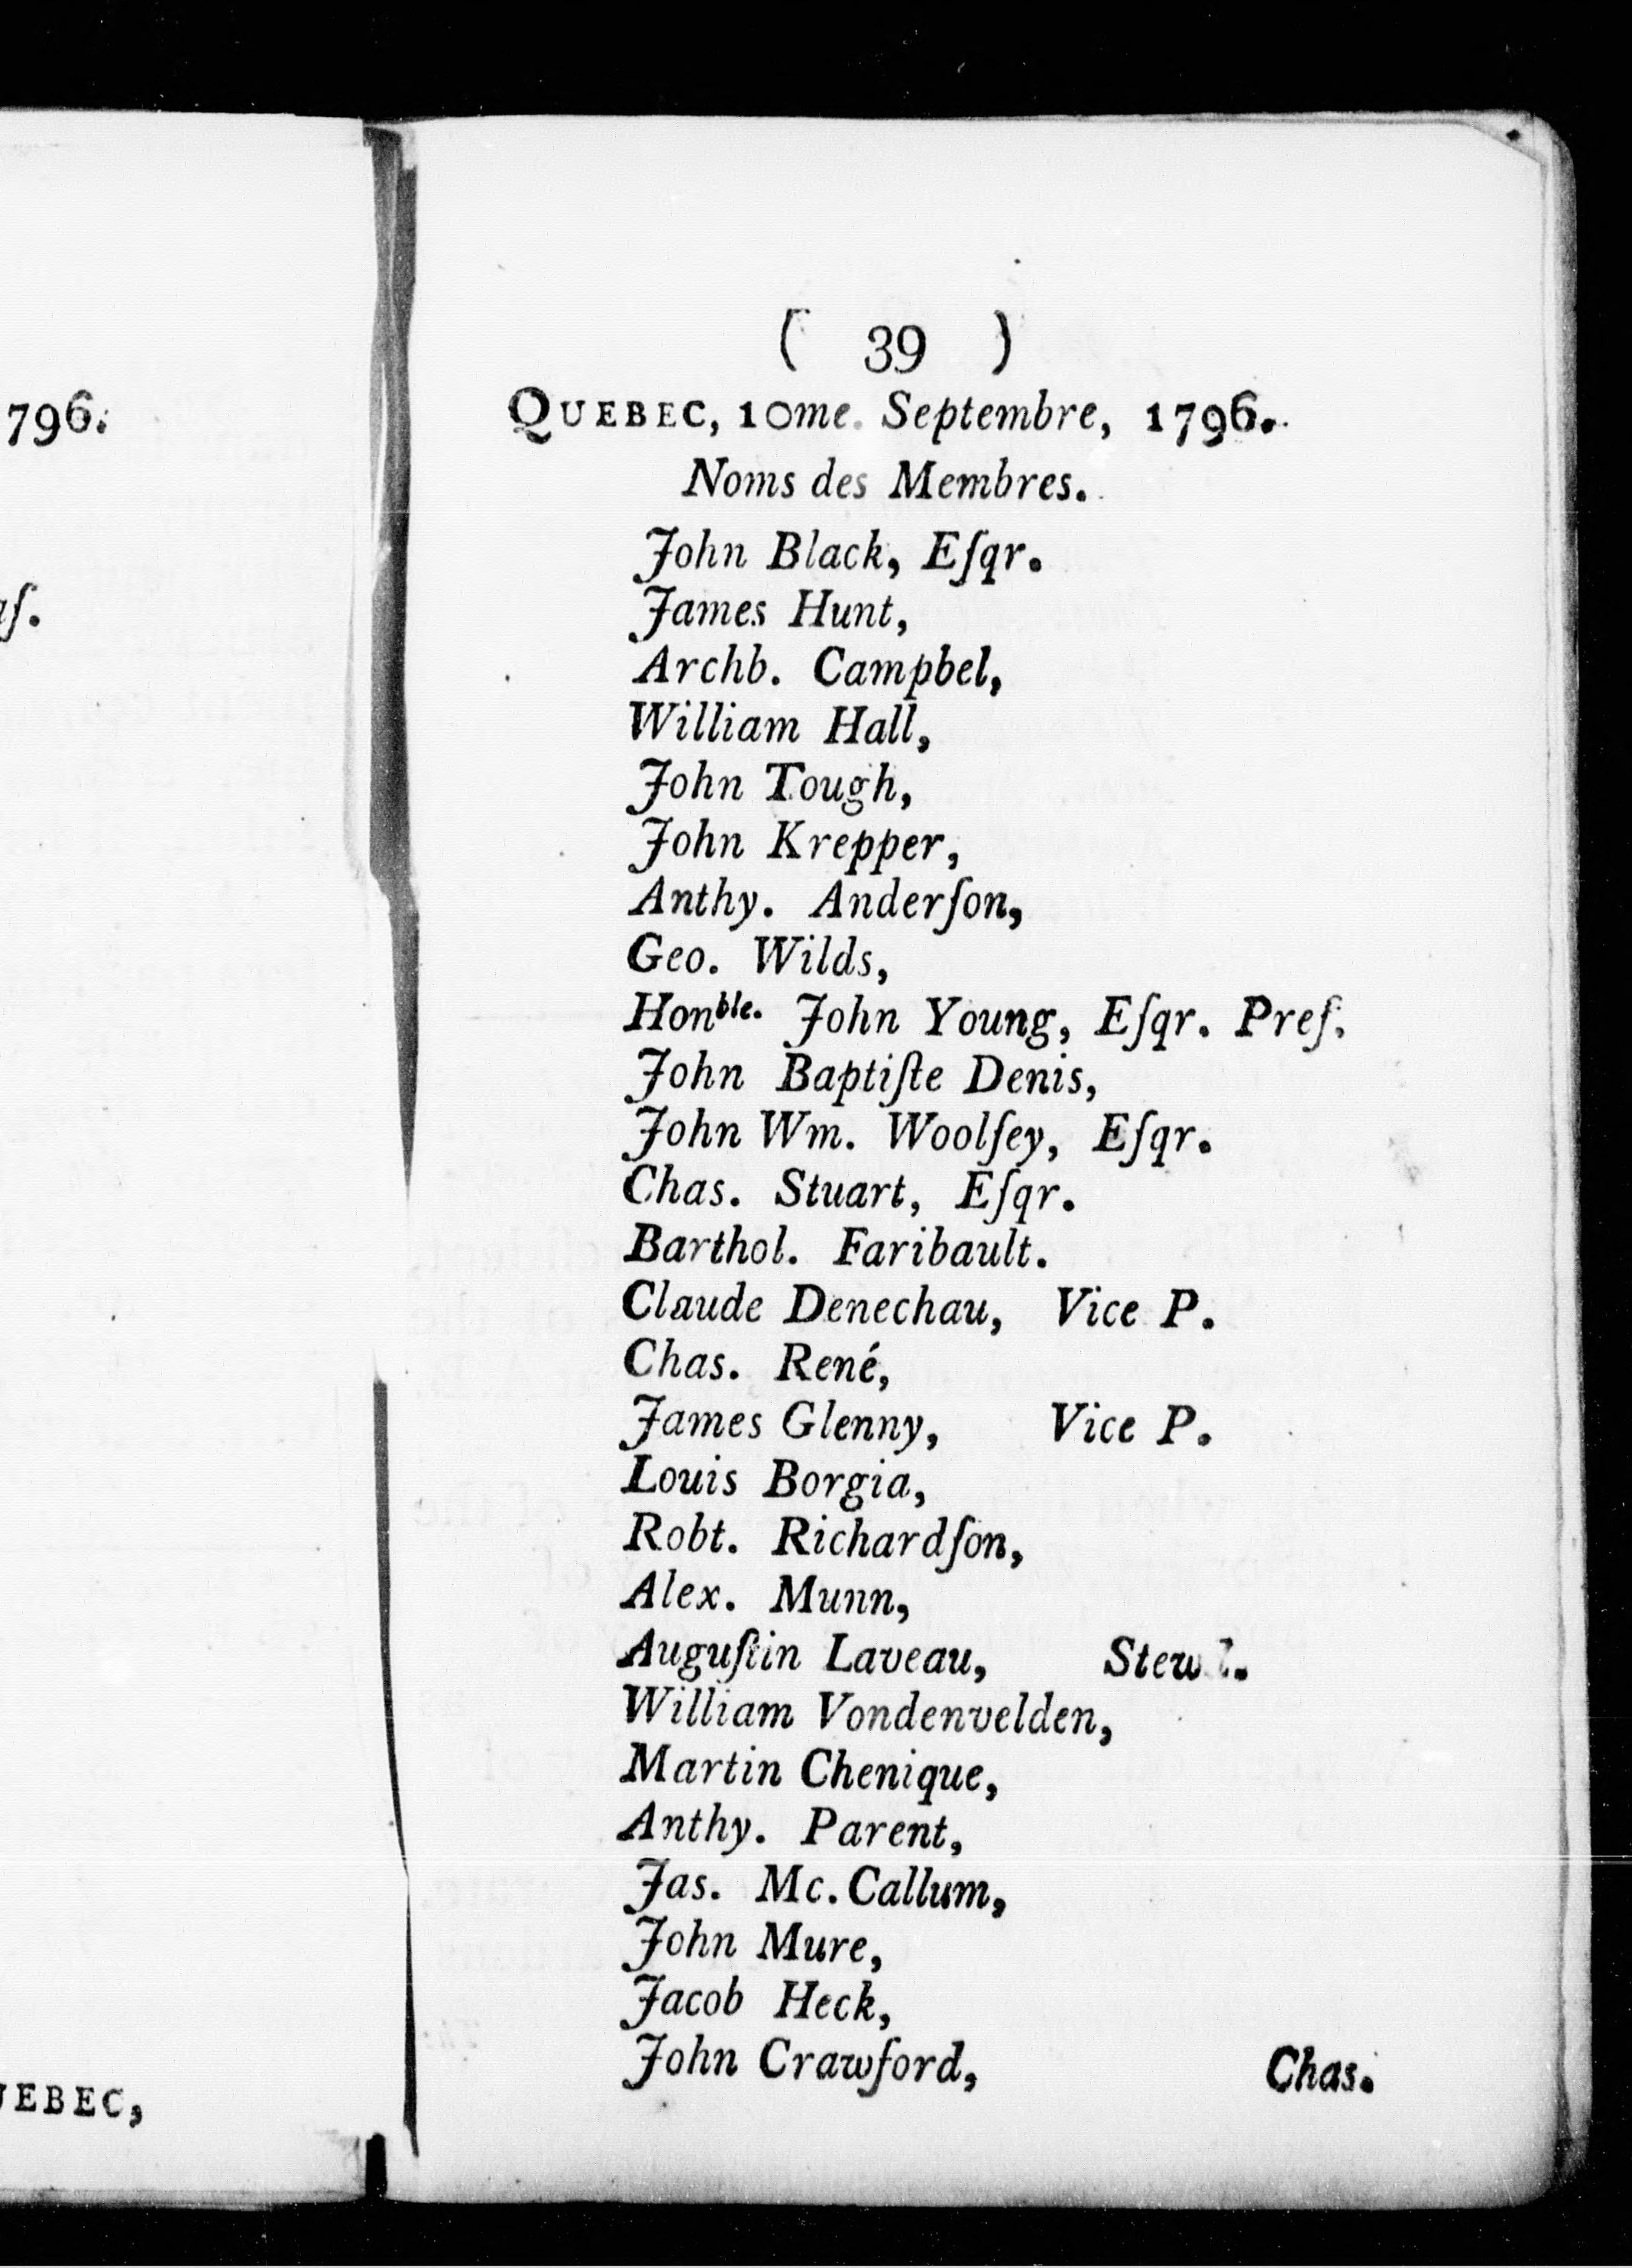 796.
UEBEC,
( 39 )
QUEBEC, 10me. Septembre, 1796.
Noms des Membres.
John Black, Eſqr.
James Hunt,
Archb. Campbel,
William Hall,
John Tough,
John Krepper,
Anthy. Anderſon,
Geo. Wilds,
Honble. John Young, Eſqr. Preſ.
John Baptiſte Denis,
John Wm. Woolſey, Eſqr.
Chas. Stuart, Eſqr.
Barthol. Faribault.
Claude Denechau, Vice P.
Chas. René,
James Glenny, Vice P.
Louis Borgia,
Robt. Richardſon,
Alex. Munn,
Auguſtin Laveau,
William Vondenvelden,
Martin Chenique,
Anthy. Parent,
Jas. Mc. Callum,
John Mure,
Jacob Heck,
John Crawford, Chas.